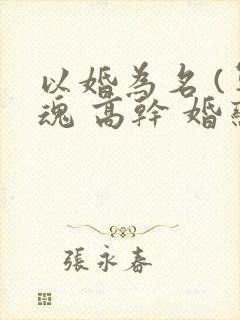 以婚為名(
魂 高幹 婚
張永春